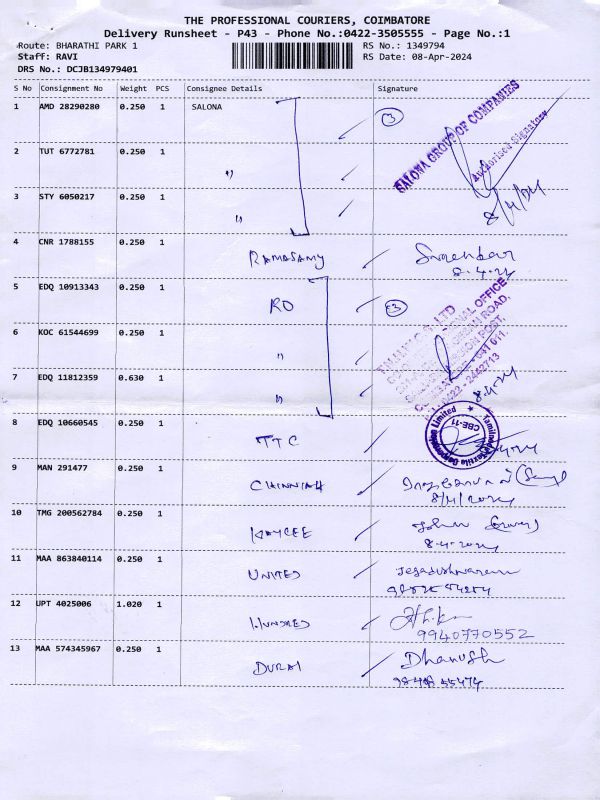 THE PROFESSIONAL COURIERS, COIMBATORE
Delivery Runsheet - P43 - Phone No.:0422-3505555 - Page No.:1
Route: BHARATHI PARK 1 RS No.: 1349794
Staff: RAVI RS Date: 08-Apr-2024
DRS No.: DCJB134979401
S No Consignment No Weight PCS Consignee Details Signature
1 AMD 28290280 0.250 1 SALONA 3
SALONA GROUP OF COMPANIES
Authorised Signatory
2 TUT 6772781 0.250 1 "
3 STY 6050217 0.250 1 "
8/4/24
4 CNR 1788155 0.250 1 RAMASAMY
8.4.24
5 EDQ 10913343 0.250 1 RO 3
6 KOC 61544699 0.250 1 "
7 EDQ 11812359 0.630 1 "
8.4.24
8 EDQ 10660545 0.250 1 TTC
Tamilnadu Textile Corporation Limited
CBE-11
9 MAN 291477 0.250 1 CHINNIAH
8/4/2024
10 TMG 200562784 0.250 1 KAYCEE
8.4.2024
11 MAA 863840114 0.250 1 UNITED
12 UPT 4025006 1.020 1 HUNDRED
9940770552
13 MAA 574345967 0.250 1 DURAI Dhanush